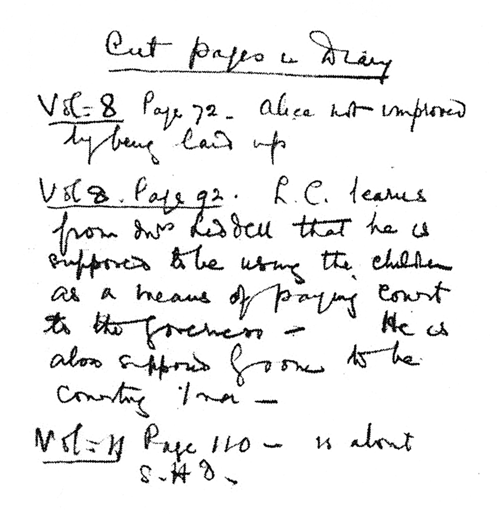 Cut Pages in Diary
Vol: 8 Page 72 - Alice not improved
by being laid up
Vol 8. Page 92. L.C. learns
from Mrs Liddell that he is
supposed to be using the children
as a means of paying court
to the governess - He is
also supposed by some to be
courting Ina -
Vol: 11 Page 110 - is about
S.H.D.